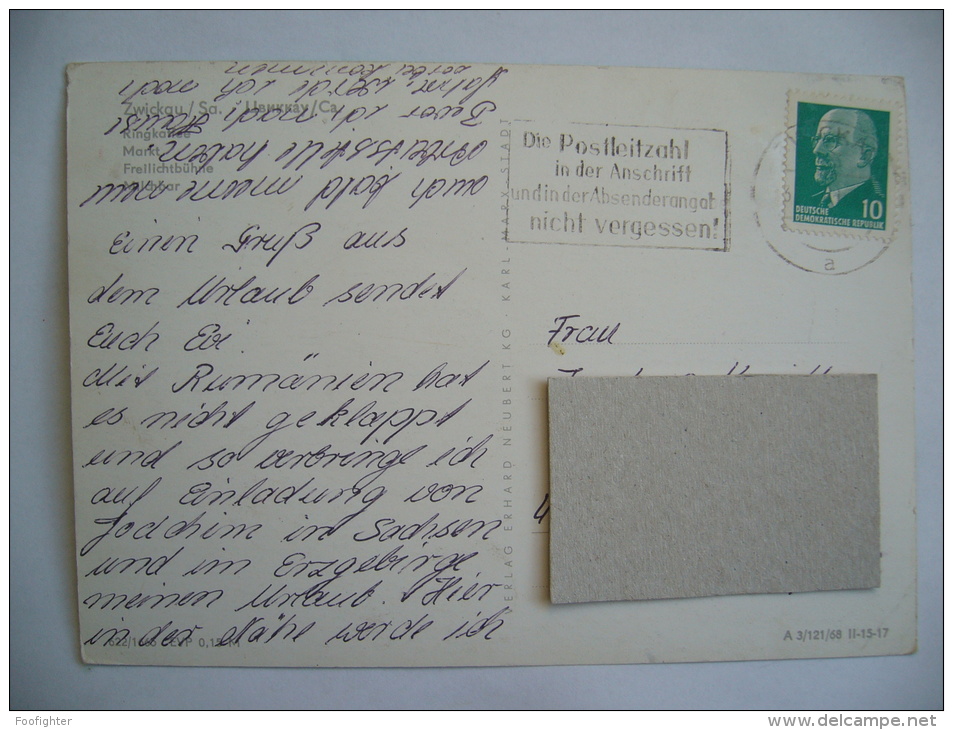 Zwickau / Sa. Цвиккау/Са.
Ringkaffee
Markt
Freilichtbühne
Milchbar
Einen Gruß aus
dem Urlaub sendet
Euch Evi.
Mit Rumänien hat
es nicht geklappt
und so verbringe ich
auf Einladung von
Joachim in Sachsen
und im Erzgebirge
meinen Urlaub. Hier
in der Nähe werde ich
auch bald meine neue
haben.
Bevor ich nach
werde ich noch
vorbei kommen
622/1 EVP 0,15 M
VERLAG ERHARD NEUBERT KG · KARL-MARX-STADT
Die Postleitzahl
in der Anschrift
und in der Absenderangabe
nicht vergessen!
a
10
DEUTSCHE
DEMOKRATISCHE REPUBLIK
Frau
A 3/121/68 II-15-17
Foofighter
http://www.delcampe.net